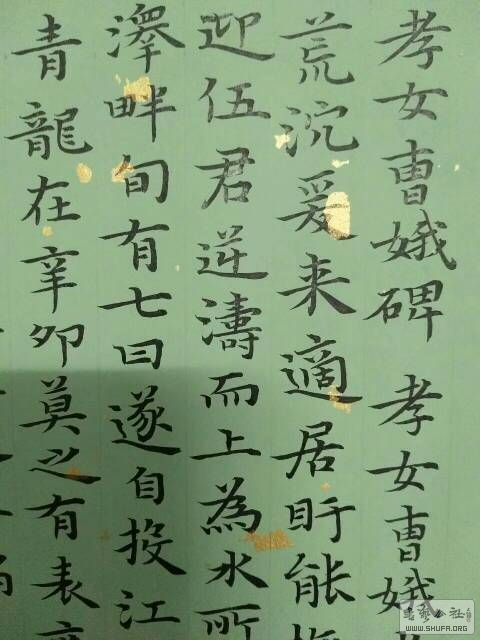 孝女曹娥碑 孝女曹娥
荒沉爰来適居盱能
迎伍君逆濤而上為水所
澤畔旬有七日遂自投江
青龍在辛卯莫之有表
书艺公社
WWW.SHUFA.ORG